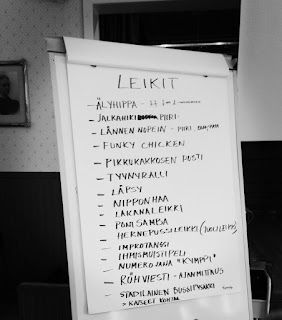 LEIKIT
- ÄLYHIPPA -
- JALKAHIKI PIIRI
- LÄNNEN NOPEIN - PIIRI,
- FUNKY CHICKEN
- PIKKUKAKKOSEN POSTI
- TYYNYRALLI
- LÄPSY
- NIPPONHAA
- LAKANALEIKKI
- PONI SAMBA
- HERNEPUSSILEIKKI (TUOLILEIKKI)
- IMPROTANSSI
- IHMISMUISTIPELI
- NUMEROJANA "KYMPPI"
- RÖHVIESTI - AJANMITTAUS
- STADILAINEN BUSSIPYSÄKKI